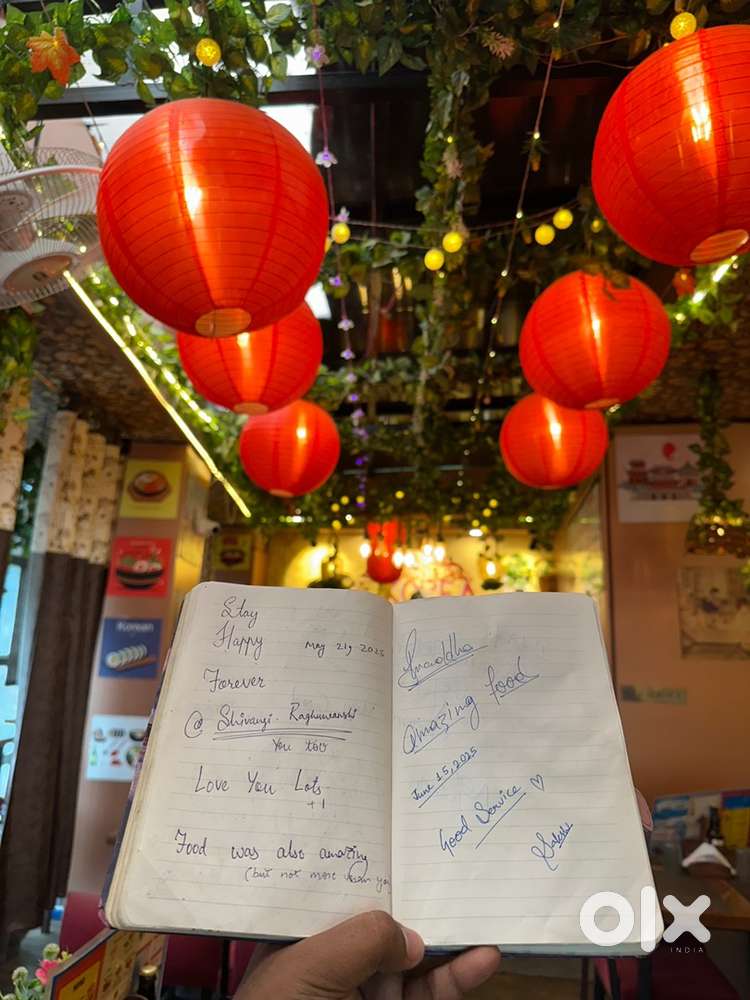 Korean
Stay
Happy
May 21, 2025
Forever
@ Shivangi Raghuwanshi
You too
Love You Lots
+1
Food was also amazing
(but not more than you
Shraddha
Amazing food
June 15, 2025
Good Service ♡
Sakshi
olx
INDIA